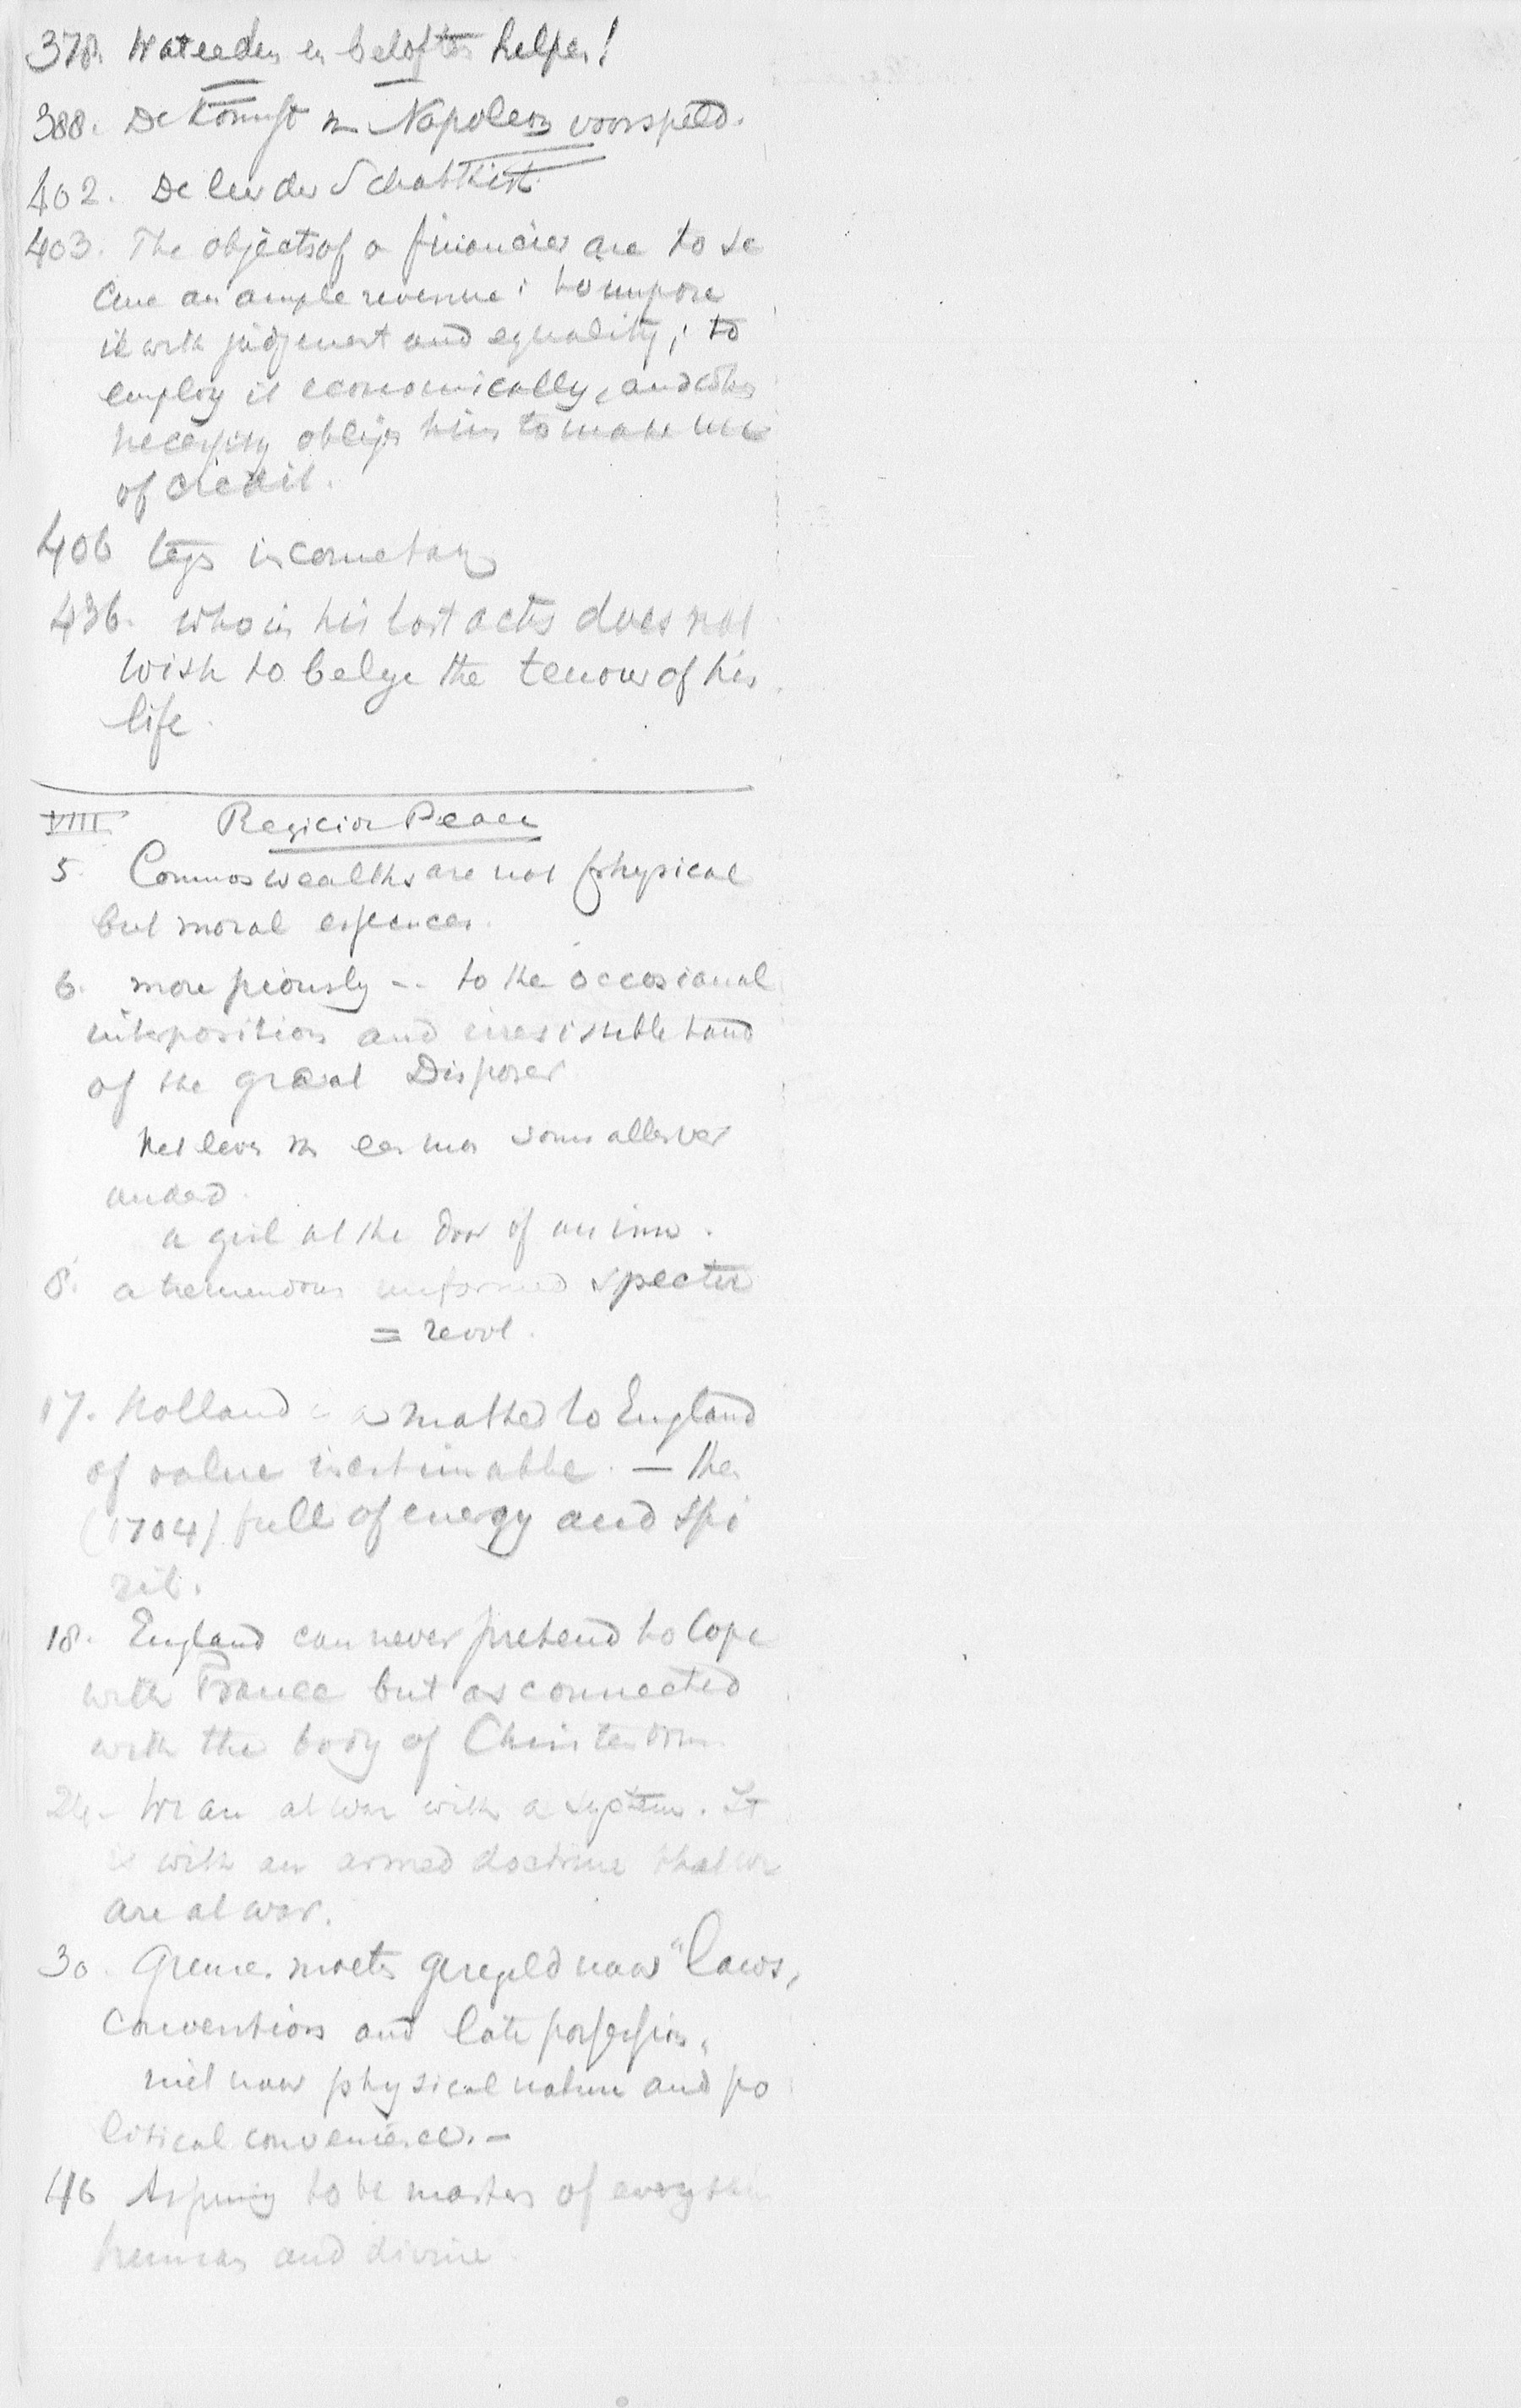 378. Wat eeden en beloften helpen!
388. De komst van Napoleon voorspeld.
402. De leer der Schatkist.
403. The objects of a financier are to se
cure an ample revenue; to impose
it with judgement and equality; to
employ it economically, and when
necessity obliges him to make use
of credit.
406 tegen incometax
436. who in his last acts does not
wish to belye the tenour of his
life.
VIII Regicide Peace
5. Commonwealths are not physical
but moral essences.
6. more piously -- to the occasional
interposition and irresistible hand
of the great Disposer
Het leven van een man soms alles ver
andert.
a girl at the door of an inn.
8. a tremendous unformed spectre
= revol.
17. Holland is a matter to England
of value inestimable. — then
(1704) full of energy and spi
rit.
18. England can never pretend to cope
with France but as connected
with the body of Christendom
24. We are at war with a system. It
is with an armed doctrine that we
are at war.
30. Grenzen moeten geregeld naar "laws,
conventions and late possession,
niet naar physical nature and po
litical convenience. -
46 Aspiring to be masters of every
human and divine